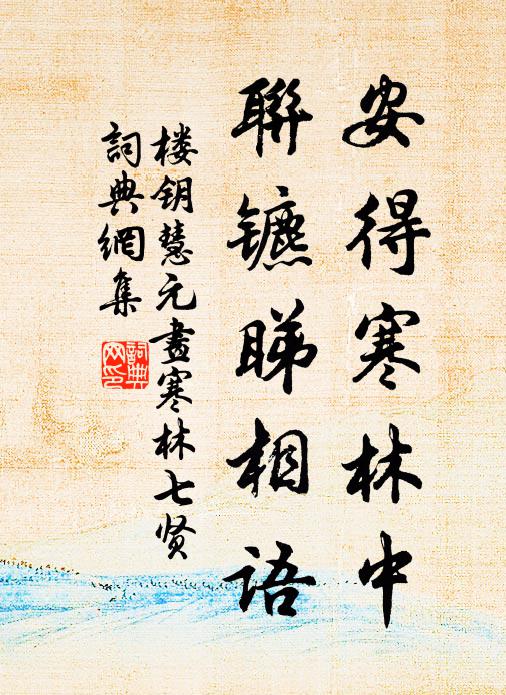 安得寒林中
聯镳睇相语
楼钥慧元畫寒林七贤
詞典網集
詞典
网印